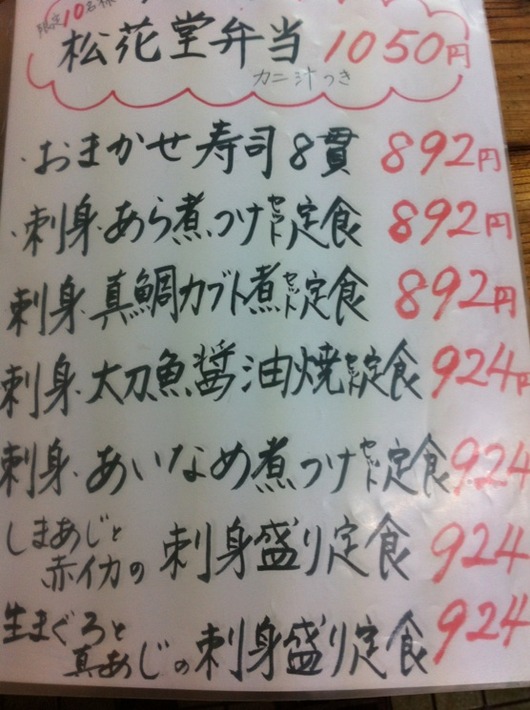 限定10名様
松花堂弁当 1050円
カニ汁つき
・おまかせ寿司8貫 892円
・刺身・あら煮つけセット定食 892円
刺身・真鯛カブト煮セット定食 892円
刺身・太刀魚醤油焼セット定食 924円
刺身・あいなめ煮つけセット定食 924
しまあじと
赤イカの刺身盛り定食 924
生まぐろと
真あじの刺身盛り定食 924